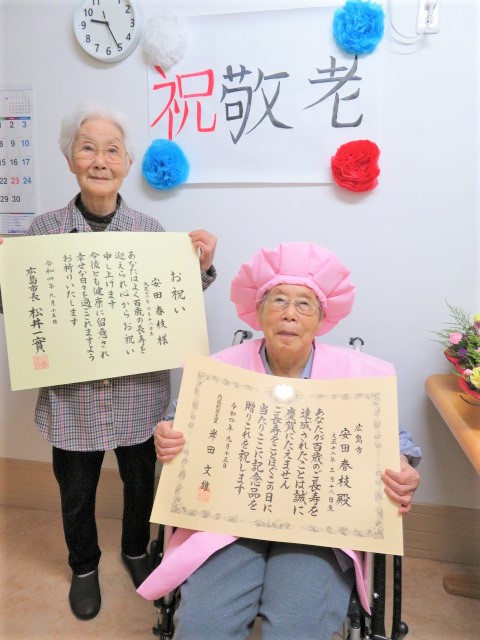 祝敬老
お祝い
安田 春枝 様
あなたはよく百歳の長寿を
迎えられ心からお祝い
申し上げます
今後とも健康に留意され
幸せな日々を過ごされますよう
お祈りいたします
令和四年九月十五日
広島市長 松井一實
広島市
安田 春枝 殿
あなたが百歳のご長寿を
達成されたことは誠に
慶賀にたえません
ご長寿をことほぐこの日に
当たりここに記念品を
贈りこれを祝します
令和四年九月十五日
内閣総理大臣 岸田文雄